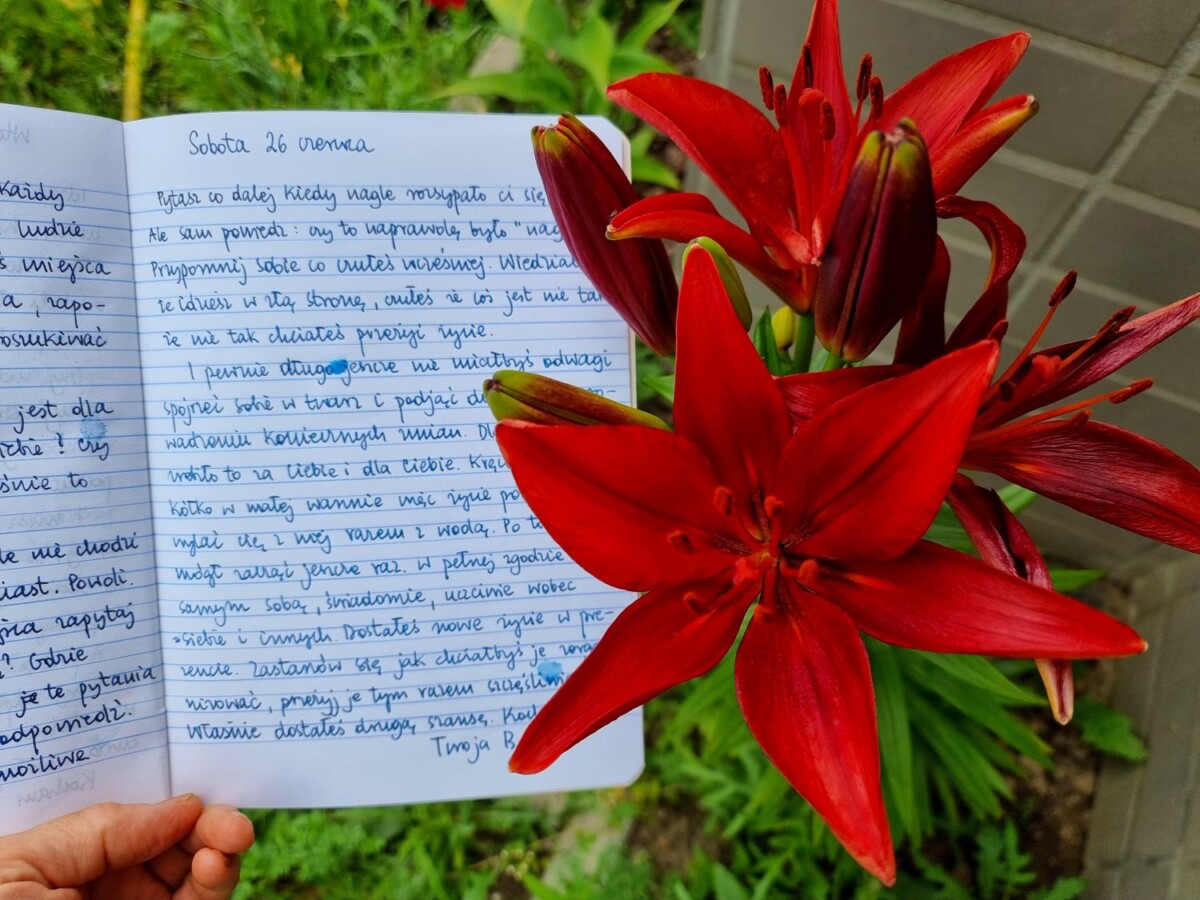 Każdy
ludzie
ś miejsca
a, zapo-
oszukiwać
jest dla
iebie? Czy
śnie to
le nie chodzi
iast. Powoli.
jsca zapytaj
? Gdzie
je te pytania
odpowiedzi.
możliwe
Sobota 26 czerwca
Pytasz co dalej kiedy nagle rozsypało ci się
Ale sam powiedz: czy to naprawdę było "nag
Przypomnij sobie co czułeś wcześniej. Wiedział
że idziesz w złą stronę, czułeś że coś jest nie tak
że nie tak chciałeś przeżyć życie.
I pewnie długo jeszcze nie miałbyś odwagi
spojrzeć sobie w twarz i podjąć
wadzeniu koniecznych zmian.
zrobiło to za Ciebie i dla Ciebie. Kręci
kółko w małej wannie więc życie po
wylać cię z niej razem z wodą. Po to
mógł zacząć jeszcze raz. W pełnej zgodzie
samym sobą, świadomie, uczciwie wobec
siebie i innych. Dostałeś nowe życie w pre-
zencie. Zastanów się jak chciałbyś je zorga
nizować, przeżyj je tym razem szczęśliw
Właśnie dostałeś drugą szansę.
Twoja B